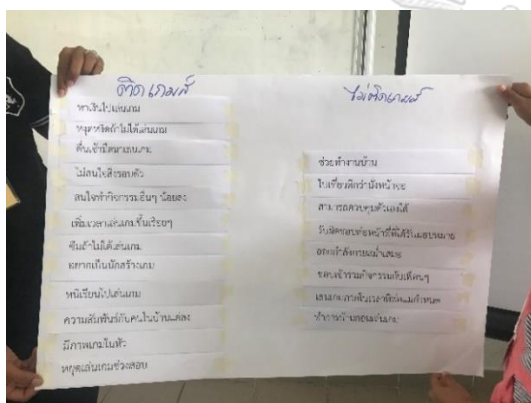 ติดเกมส์
หาเงินไปเล่นเกม
หงุดหงิดถ้าไม่ได้เล่นเกม
ตื่นเช้ามืดมาเล่นเกม
ไม่สนใจสิ่งรอบตัว
สนใจทำกิจกรรมอื่นๆ น้อยลง
เพิ่มเวลาเล่นเกมขึ้นเรื่อยๆ
ซึมถ้าไม่ได้เล่นเกม
อยากเป็นนักสร้างเกม
หนีเรียนไปเล่นเกม
ความสัมพันธ์กับคนในบ้านแย่ลง
มีภาพเกมในหัว
หยุดเล่นเกมช่วงสอบ
ไม่ติดเกมส์
ช่วยทำงานบ้าน
ไปเที่ยวดีกว่านั่งหน้าจอ
สามารถควบคุมตัวเองได้
รับผิดชอบต่อหน้าที่ที่ได้รับมอบหมาย
ออกกำลังกายสม่ำเสมอ
ชอบเข้าร่วมกิจกรรมกับเพื่อนๆ
เล่นเกมภายในเวลาที่พ่อแม่กำหนด
ทำการบ้านก่อนเล่นเกม